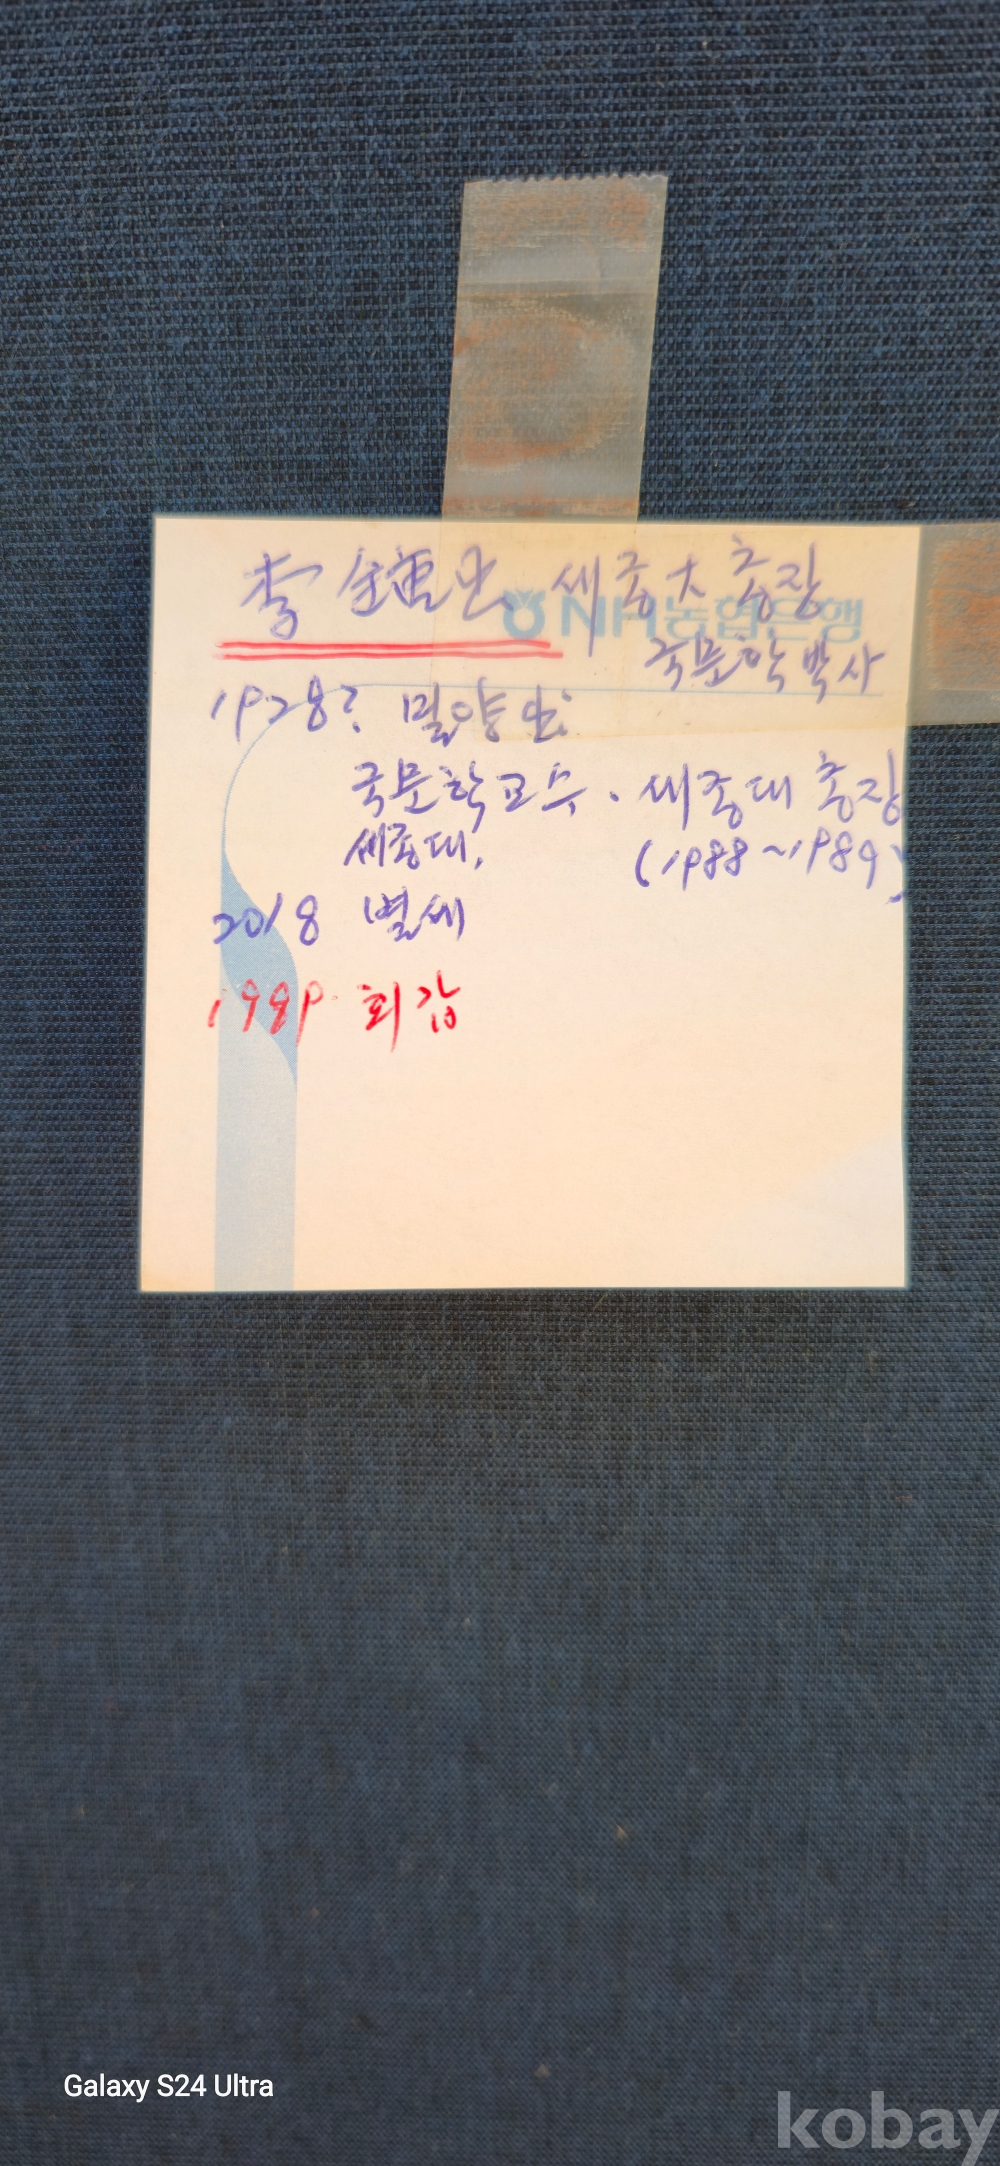 李 세종大 총장
NH농협은행
국문학 박사
1928? 밀양 出
국문학교수. 세종대 총장
세종대, (1988~1989)
2018 별세
1989. 회갑
Galaxy S24 Ultra
kobay